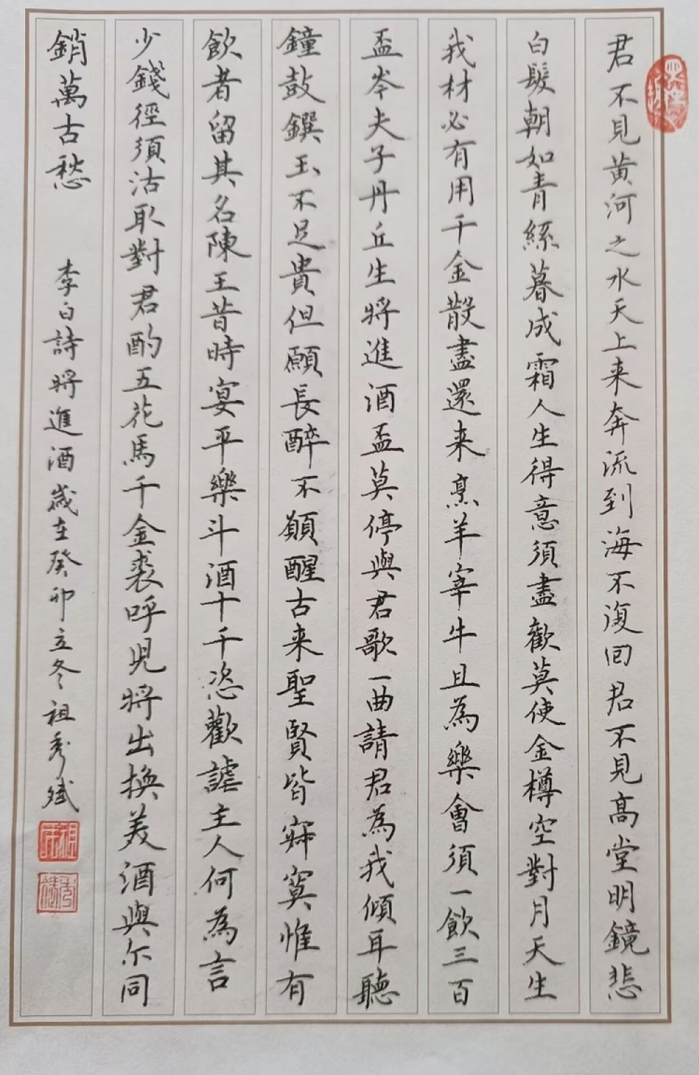 君不見黄河之水天上来奔流到海不復回君不見高堂明鏡悲
白髮朝如青絲暮成霜人生得意須盡歡莫使金樽空對月天生
我材必有用千金散盡還来烹羊宰牛且為樂會須一飲三百
盃岑夫子丹丘生將進酒盃莫停與君歌一曲請君為我傾耳聽
鐘鼓饌玉不足貴但願長醉不願醒古来聖賢皆寂寞惟有
飲者留其名陳王昔時宴平樂斗酒十千恣歡謔主人何為言
少錢徑須沽取對君酌五花馬千金裘呼児將出換美酒與尔同
銷萬古愁
李白詩將進酒歲在癸卯立冬祖秀斌